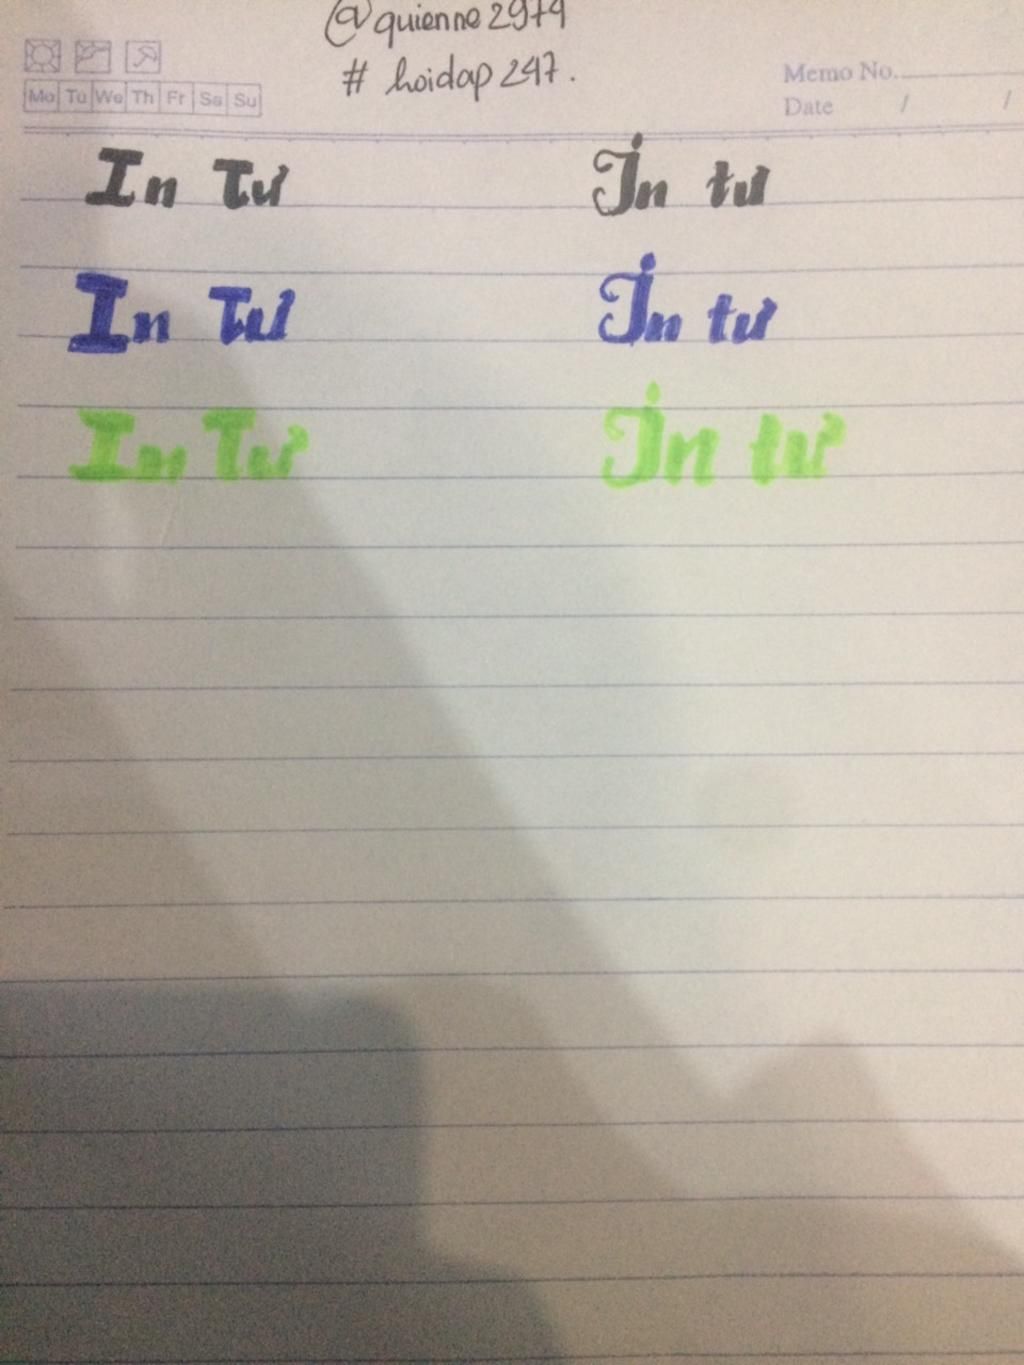 @quienne2979
# hoidap247.
Memo No.
Mo Tu We Th Fr Sa Su
Date / /
In Tư In tư
In Tư In tư
In Tư In tư